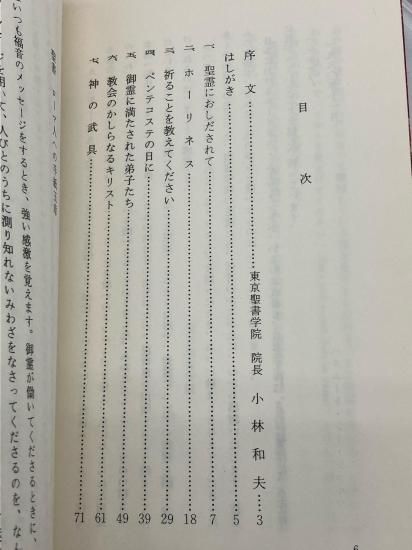 目次
序文……東京聖書学院 院長 小林和夫…3
はしがき……5
一、聖霊におしだされて……7
二、ホーリネス……18
三、祈ることを教えてください……29
四、ペンテコステの日に……39
五、御霊に満たされた弟子たち……49
六、教会のかしらなるキリスト……61
七、神の武具……71
6
いつも福音のメッセージをするとき、強い感激を覚えます。御霊が働いてくださるときに、
人びとのうちに測り知れないみわざをなさってくださるのを、な